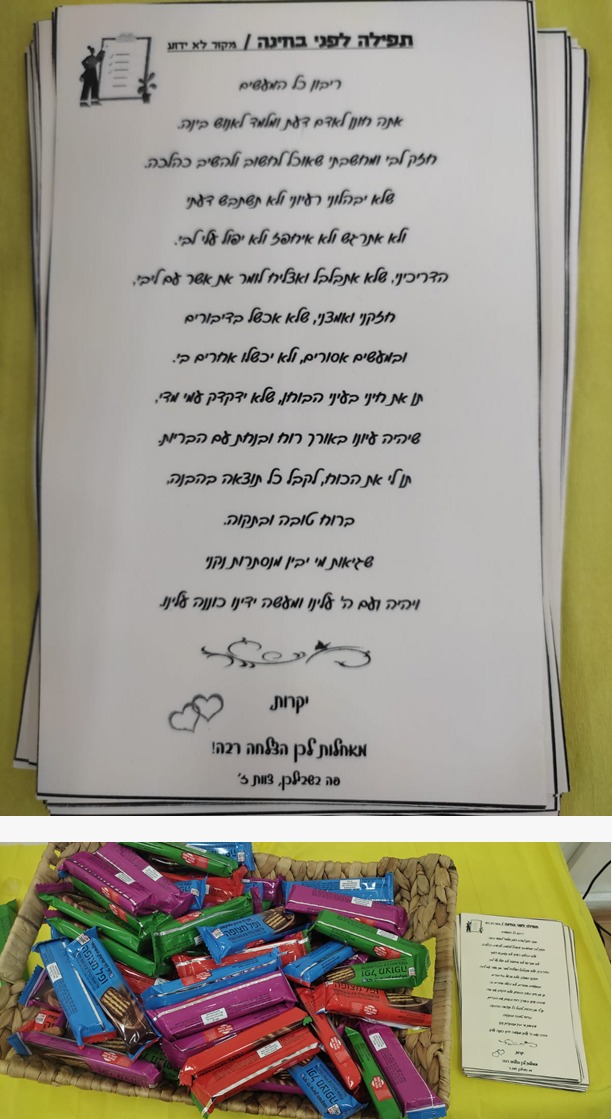 תפילה לפני בחינה / מקור לא ידוע
ריבון כל המעשים
אתה חונן לאדם דעת ומלמד לאנוש בינה.
חזק לבי ומחשבתי שאוכל לחשוב ולהשיב כהלכה.
שלא יבהלוני רעיוני ולא תשתבש דעתי
ולא אתרגש ולא איחפז ולא יפול עלי לבי.
הדריכיני, שלא אתבלבל ואצליח לומר את אשר עם ליבי,
חזקני ואמצני, שלא אכשל בדיבורים
ובמעשים אסורים, ולא יכשלו אחרים בי.
תן את חיני בעיני הבוחן, שלא ידקדק עמי מדי,
שיהיה עיונו באורך רוח ובנחת עם הבריות.
תן לי את הכוח, לקבל כל תוצאה בהבנה,
ברוח טובה ובתקוה.
שגיאות מי יבין מנסתרות נקני
ויהיה נועם ה' עלינו ומעשה ידינו כוננה עלינו.
יקרות,
מאחלות לכן הצלחה רבה!
פה בשבילכן, צוות ז'